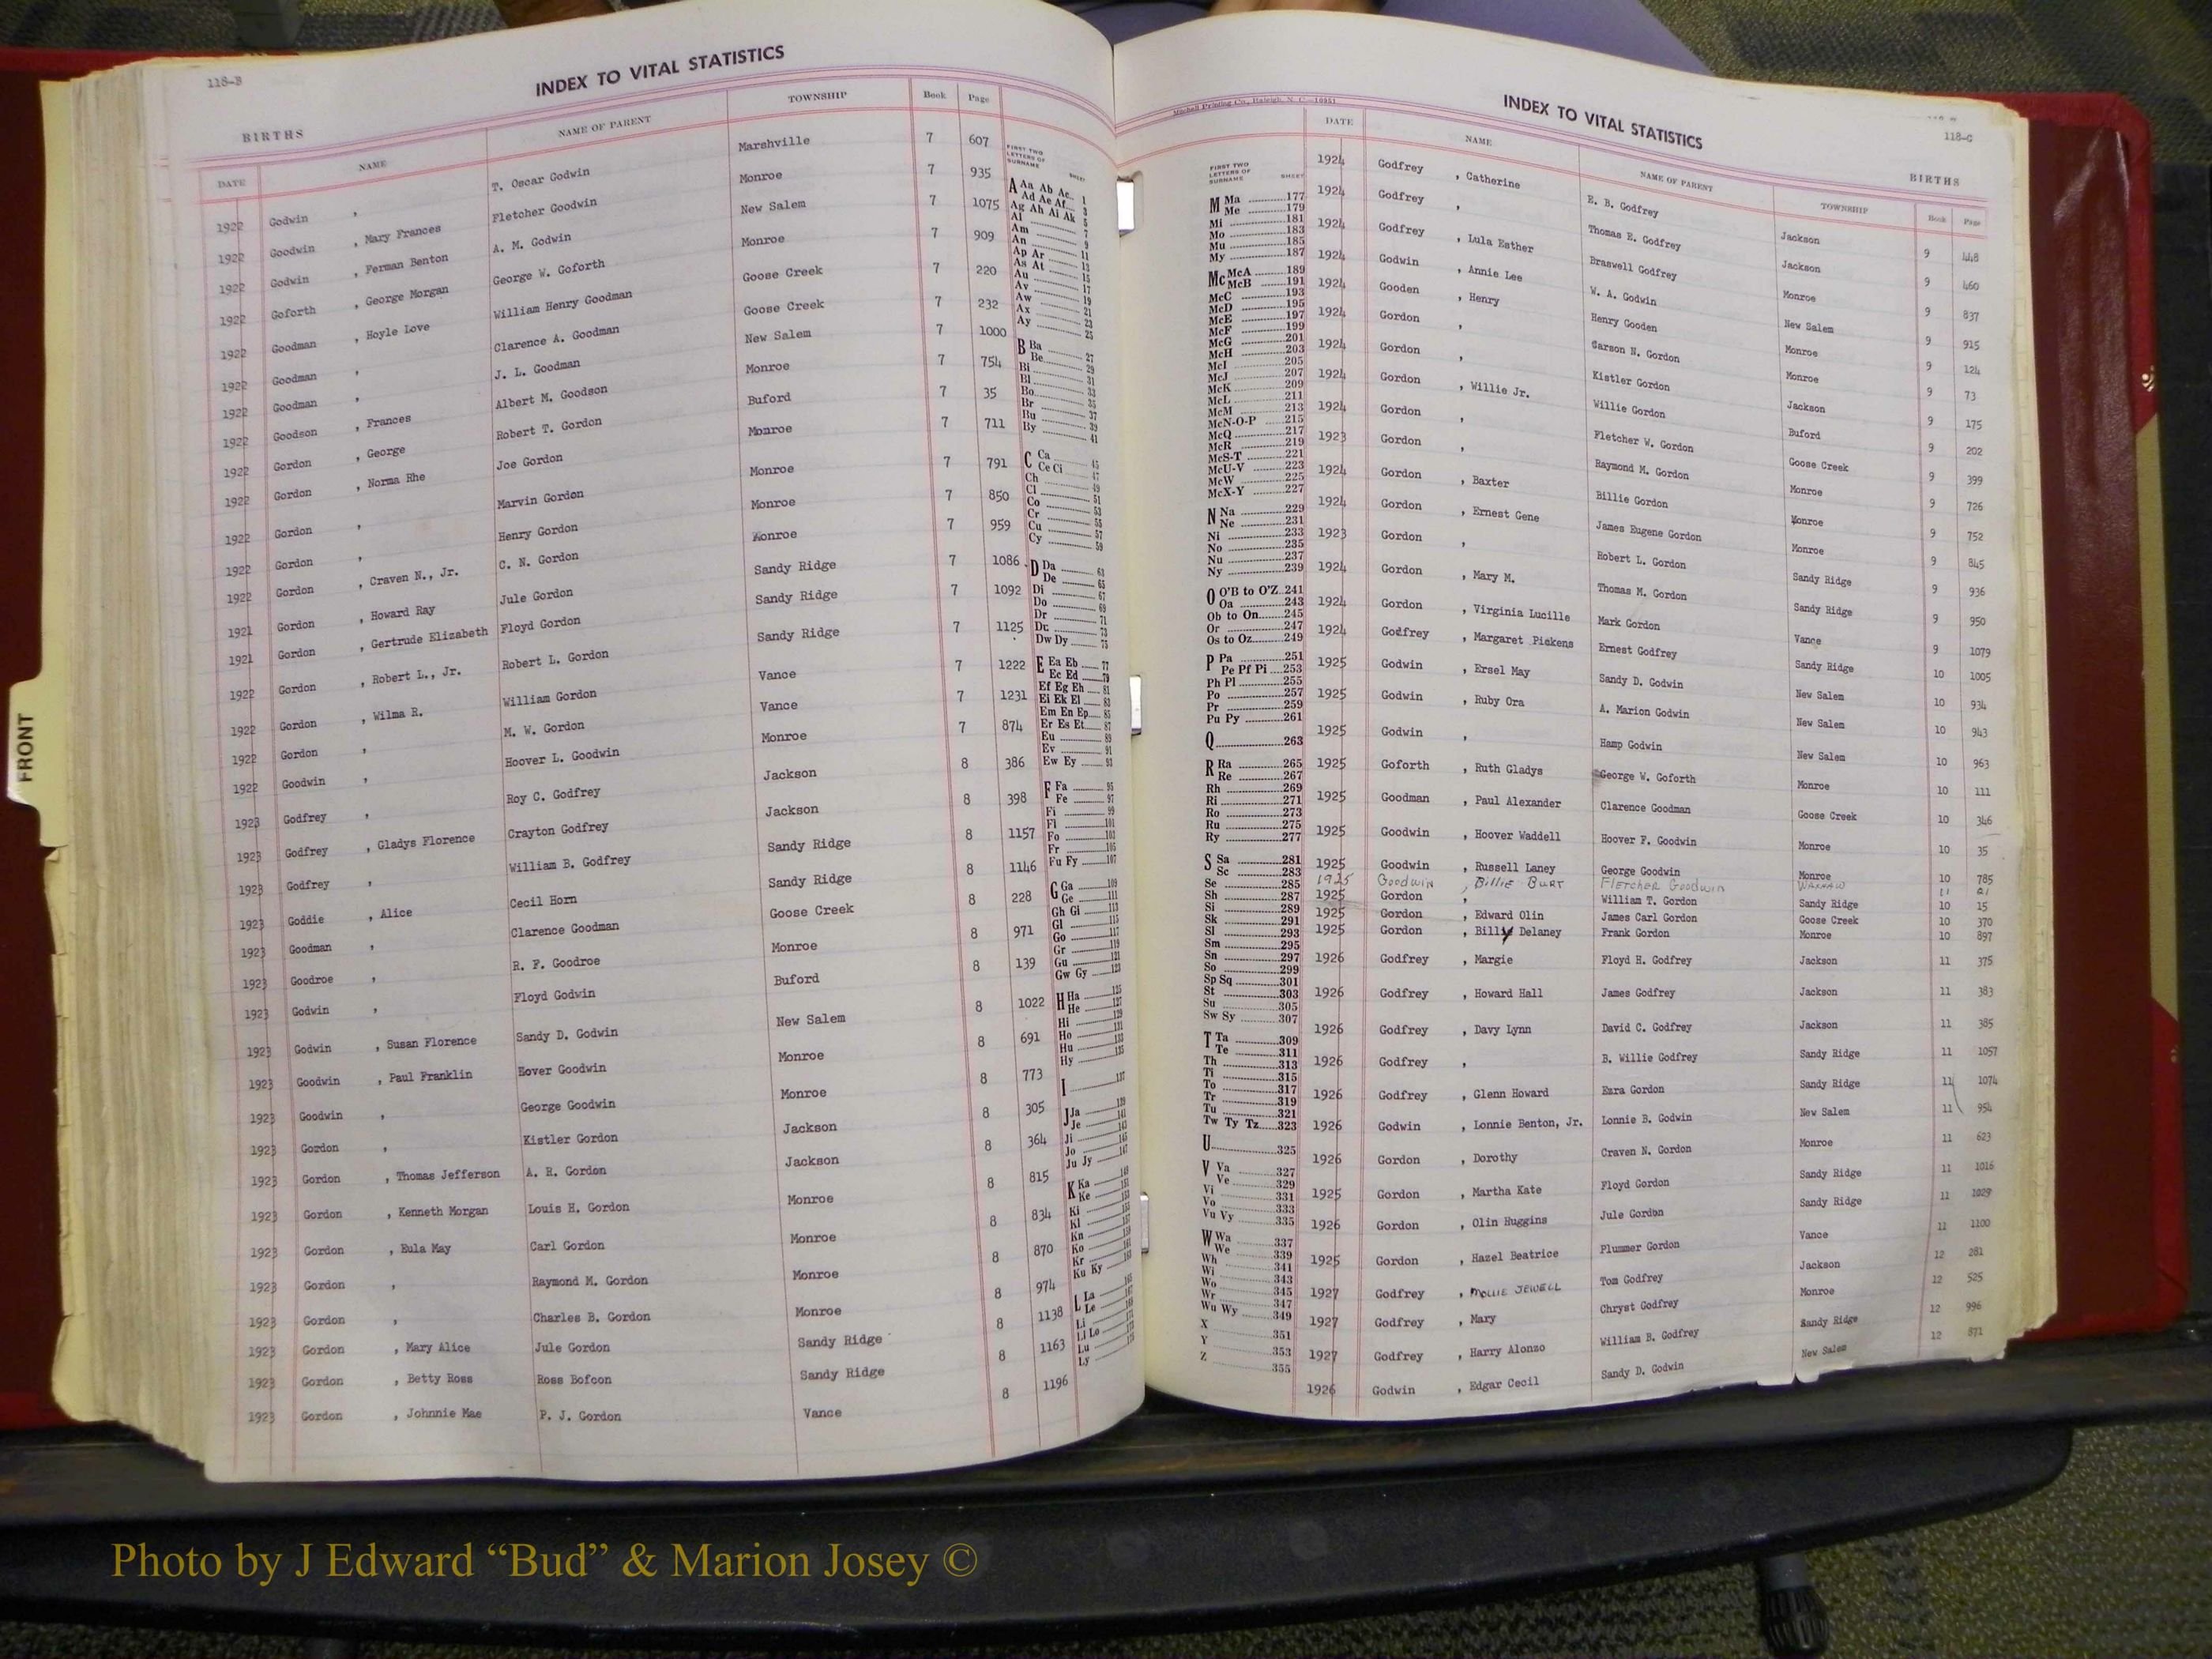 118-B
INDEX TO VITAL STATISTICS
BIRTHS
DATE NAME NAME OF PARENT TOWNSHIP Book Page
1922 Godwin , T. Oscar Godwin Marshville 7 607
1922 Goodwin , Mary Frances Fletcher Goodwin Monroe 7 935
1922 Godwin , Ferman Benton A. M. Godwin New Salem 7 1075
1922 Goforth , George Morgan George W. Goforth Monroe 7 909
1922 Goodman , Hoyle Love William Henry Goodman Goose Creek 7 220
1922 Goodman , Clarence A. Goodman Goose Creek 7 232
1922 Goodman , J. L. Goodman New Salem 7 1000
1922 Goodson , Frances Albert M. Goodson Monroe 7 754
1922 Gordon , George Robert T. Gordon Buford 7 35
1922 Gordon , Norma Rhe Joe Gordon Monroe 7 711
1922 Gordon , Marvin Gordon Monroe 7 791
1922 Gordon , Henry Gordon Monroe 7 850
1922 Gordon , Craven N., Jr. C. N. Gordon Monroe 7 959
1921 Gordon , Howard Ray Jule Gordon Sandy Ridge 7 1086
1921 Gordon , Gertrude Elizabeth Floyd Gordon Sandy Ridge 7 1092
1922 Gordon , Robert L., Jr. Robert L. Gordon Sandy Ridge 7 1125
1922 Gordon , Wilma R. William Gordon Vance 7 1222
1922 Gordon , M. W. Gordon Vance 7 1231
1922 Goodwin , Hoover L. Goodwin Monroe 7 874
1923 Godfrey , Roy C. Godfrey Jackson 8 386
1923 Godfrey , Gladys Florence Crayton Godfrey Jackson 8 398
1923 Godfrey , William B. Godfrey Sandy Ridge 8 1157
1923 Goddie , Alice Cecil Horn Sandy Ridge 8 1146
1923 Goodman , Clarence Goodman Goose Creek 8 228
1923 Goodroe , R. F. Goodroe Monroe 8 971
1923 Godwin , Floyd Godwin Buford 8 139
1923 Godwin , Susan Florence Sandy D. Godwin New Salem 8 1022
1923 Goodwin , Paul Franklin Hover Goodwin Monroe 8 691
1923 Goodwin , George Goodwin Monroe 8 773
1923 Gordon , Kistler Gordon Jackson 8 305
1923 Gordon , Thomas Jefferson A. R. Gordon Jackson 8 364
1923 Gordon , Kenneth Morgan Louis H. Gordon Monroe 8 815
1923 Gordon , Eula May Carl Gordon Monroe 8 834
1923 Gordon , Raymond M. Gordon Monroe 8 870
1923 Gordon , Charles B. Gordon Monroe 8 974
1923 Gordon , Mary Alice Jule Gordon Sandy Ridge 8 1138
1923 Gordon , Betty Ross Ross Bofcon Sandy Ridge 8 1163
1923 Gordon , Johnnie Mae P. J. Gordon Vance 8 1196
FIRST TWO LETTERS OF SURNAME SHEET
A Aa Ab Ac 1
Ad Ae Af 3
Ag Ah Ai Ak 5
Al 7
Am 9
An 11
Ap Ar 13
As At 15
Au 17
Av 19
Aw 21
Ax 23
Ay 25
B Ba 27
Be 29
Bi 31
Bl 33
Bo 35
Br 37
Bu 39
By 41
C Ca 45
Ce Ci 47
Ch 49
Cl 51
Co 53
Cr 55
Cu 57
Cy 59
D Da 63
De 65
Di 67
Do 69
Dr 71
Du 73
Dw Dy 75
E Ea Eb 77
Ec Ed 79
Ef Eg Eh 81
Ei Ek El 83
Em En Ep 85
Er Es Et 87
Eu 89
Ev 91
Ew Ey 93
F Fa 95
Fe 97
Fi 99
Fl 101
Fo 103
Fr 105
Fu Fy 107
G Ga 109
Ge 111
Gh Gi 113
Gl 115
Go 117
Gr 119
Gu 121
Gw Gy 123
H Ha 125
He 127
Hi 129
Ho 131
Hu 133
Hy 135
I 137
J Ja 139
Je 141
Ji 143
Jo 145
Ju Jy 147
K Ka 149
Ke 151
Ki 153
Kl 155
Kn 157
Ko 159
Kr 161
Ku Ky 163
L La 165
Le 167
Li
Ll Lo
Lu
Ly
Mitchell Printing Co., Raleigh, N. C.—10951
INDEX TO VITAL STATISTICS
118-C
BIRTHS
DATE NAME NAME OF PARENT TOWNSHIP Book Page
FIRST TWO LETTERS OF SURNAME SHEET
M Ma 177
Me 179
Mi 181
Mo 183
Mu 185
My 187
Mc McA 189
McB 191
McC 193
McD 195
McE 197
McF 199
McG 201
McH 203
McI 205
McJ 207
McK 209
McL 211
McM 213
McN-O-P 215
McQ 217
McR 219
McS-T 221
McU-V 223
McW 225
McX-Y 227
N Na 229
Ne 231
Ni 233
No 235
Nu 237
Ny 239
O O'B to O'Z 241
Oa 243
Ob to On 245
Or 247
Os to Oz 249
P Pa 251
Pe Pf Pi 253
Ph Pl 255
Po 257
Pr 259
Pu Py 261
Q 263
R Ra 265
Re 267
Rh 269
Ri 271
Ro 273
Ru 275
Ry 277
S Sa 281
Sc 283
Se 285
Sh 287
Si 289
Sk 291
Sl 293
Sm 295
Sn 297
So 299
Sp Sq 301
St 303
Su 305
Sw Sy 307
T Ta 309
Te 311
Th 313
Ti 315
To 317
Tr 319
Tu 321
Tw Ty Tz 323
U 325
V Va 327
Ve 329
Vi 331
Vo 333
Vu Vy 335
W Wa 337
We 339
Wh 341
Wi 343
Wo 345
Wr 347
Wu Wy 349
X 351
Y 353
Z 355
1924 Godfrey , Catherine E. B. Godfrey Jackson 9 448
1924 Godfrey , Thomas E. Godfrey Jackson 9 460
1924 Godfrey , Lula Esther Braswell Godfrey Monroe 9 837
1924 Godwin , Annie Lee W. A. Godwin New Salem 9 915
1924 Gooden , Henry Henry Gooden Monroe 9 124
1924 Gordon , Carson N. Gordon Monroe 9 73
1924 Gordon , Kistler Gordon Jackson 9 175
1924 Gordon , Willie Jr. Willie Gordon Buford 9 202
1924 Gordon , Fletcher W. Gordon Goose Creek 9 399
1923 Gordon , Raymond M. Gordon Monroe 9 726
1924 Gordon , Baxter Billie Gordon Monroe 9 752
1924 Gordon , Ernest Gene James Eugene Gordon Monroe 9 845
1923 Gordon , Robert L. Gordon Sandy Ridge 9 936
1924 Gordon , Mary M. Thomas M. Gordon Sandy Ridge 9 950
1924 Gordon , Virginia Lucille Mark Gordon Vance 9 1079
1924 Godfrey , Margaret Pickens Ernest Godfrey Sandy Ridge 10 1005
1925 Godwin , Ersel May Sandy D. Godwin New Salem 10 934
1925 Godwin , Ruby Ora A. Marion Godwin New Salem 10 943
1925 Godwin , Hamp Godwin New Salem 10 963
1925 Goforth , Ruth Gladys George W. Goforth Monroe 10 111
1925 Goodman , Paul Alexander Clarence Goodman Goose Creek 10 346
1925 Goodwin , Hoover Waddell Hoover F. Goodwin Monroe 10 35
1925 Goodwin , Russell Laney George Goodwin Monroe 10 785
1925 Goodwin , Billie Burt Fletcher Goodwin Waxhaw 11 21
1925 Gordon , William T. Gordon Sandy Ridge 10 15
1925 Gordon , Edward Olin James Carl Gordon Goose Creek 10 370
1925 Gordon , Billy Delaney Frank Gordon Monroe 10 897
1926 Godfrey , Margie Floyd H. Godfrey Jackson 11 375
1926 Godfrey , Howard Hall James Godfrey Jackson 11 383
1926 Godfrey , Davy Lynn David C. Godfrey Jackson 11 385
1926 Godfrey , B. Willie Godfrey Sandy Ridge 11 1057
1926 Godfrey , Glenn Howard Ezra Gordon Sandy Ridge 11 1074
1926 Godwin , Lonnie Benton, Jr. Lonnie B. Godwin New Salem 11 954
1926 Gordon , Dorothy Craven N. Gordon Monroe 11 623
1925 Gordon , Martha Kate Floyd Gordon Sandy Ridge 11 1016
1926 Gordon , Olin Huggins Jule Gordon Sandy Ridge 11 1029
1925 Gordon , Hazel Beatrice Plummer Gordon Vance 11 1100
1927 Godfrey , MOLLIE JEWELL Tom Godfrey Jackson 12 281
1927 Godfrey , Mary Chryst Godfrey Monroe 12 525
1927 Godfrey , Harry Alonzo William B. Godfrey Sandy Ridge 12 996
1926 Godwin , Edgar Cecil Sandy D. Godwin New Salem 12 871
FRONT
Photo by J Edward “Bud” & Marion Josey ©